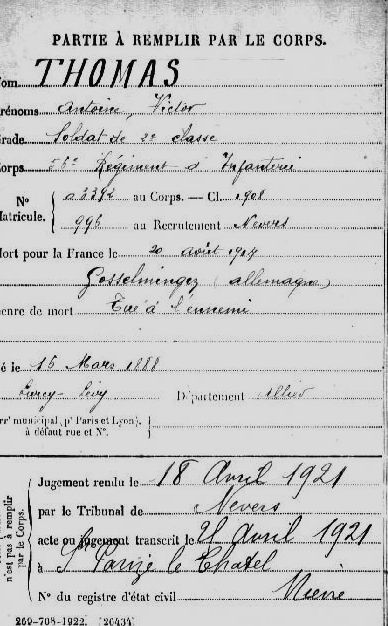 PARTIE À REMPLIR PAR LE CORPS.
om THOMAS
rénoms Antoine, Victor
rade Soldat de 2e classe
orps 56e Régiment d'Infanterie
N° au Corps. — Cl. 1908
atricule. 996 au Recrutement Nevers
ort pour la France le 20 août 1914
Gosselmingez (allemagne)
enre de mort Tué à l'ennemi
é le 15 Mars 1888
Lurcy-Lévy Département Allier
rr' municipal (p' Paris et Lyon),
à défaut rue et N°.
Jugement rendu le 18 Avril 1921
par le Tribunal de Nevers
acte ou jugement transcrit le 21 Avril 1921
à St Parize le Chatel
Nièvre
N° du registre d'état civil
n'est pas à remplir
par le Corps.
269-708-1922. [26434]